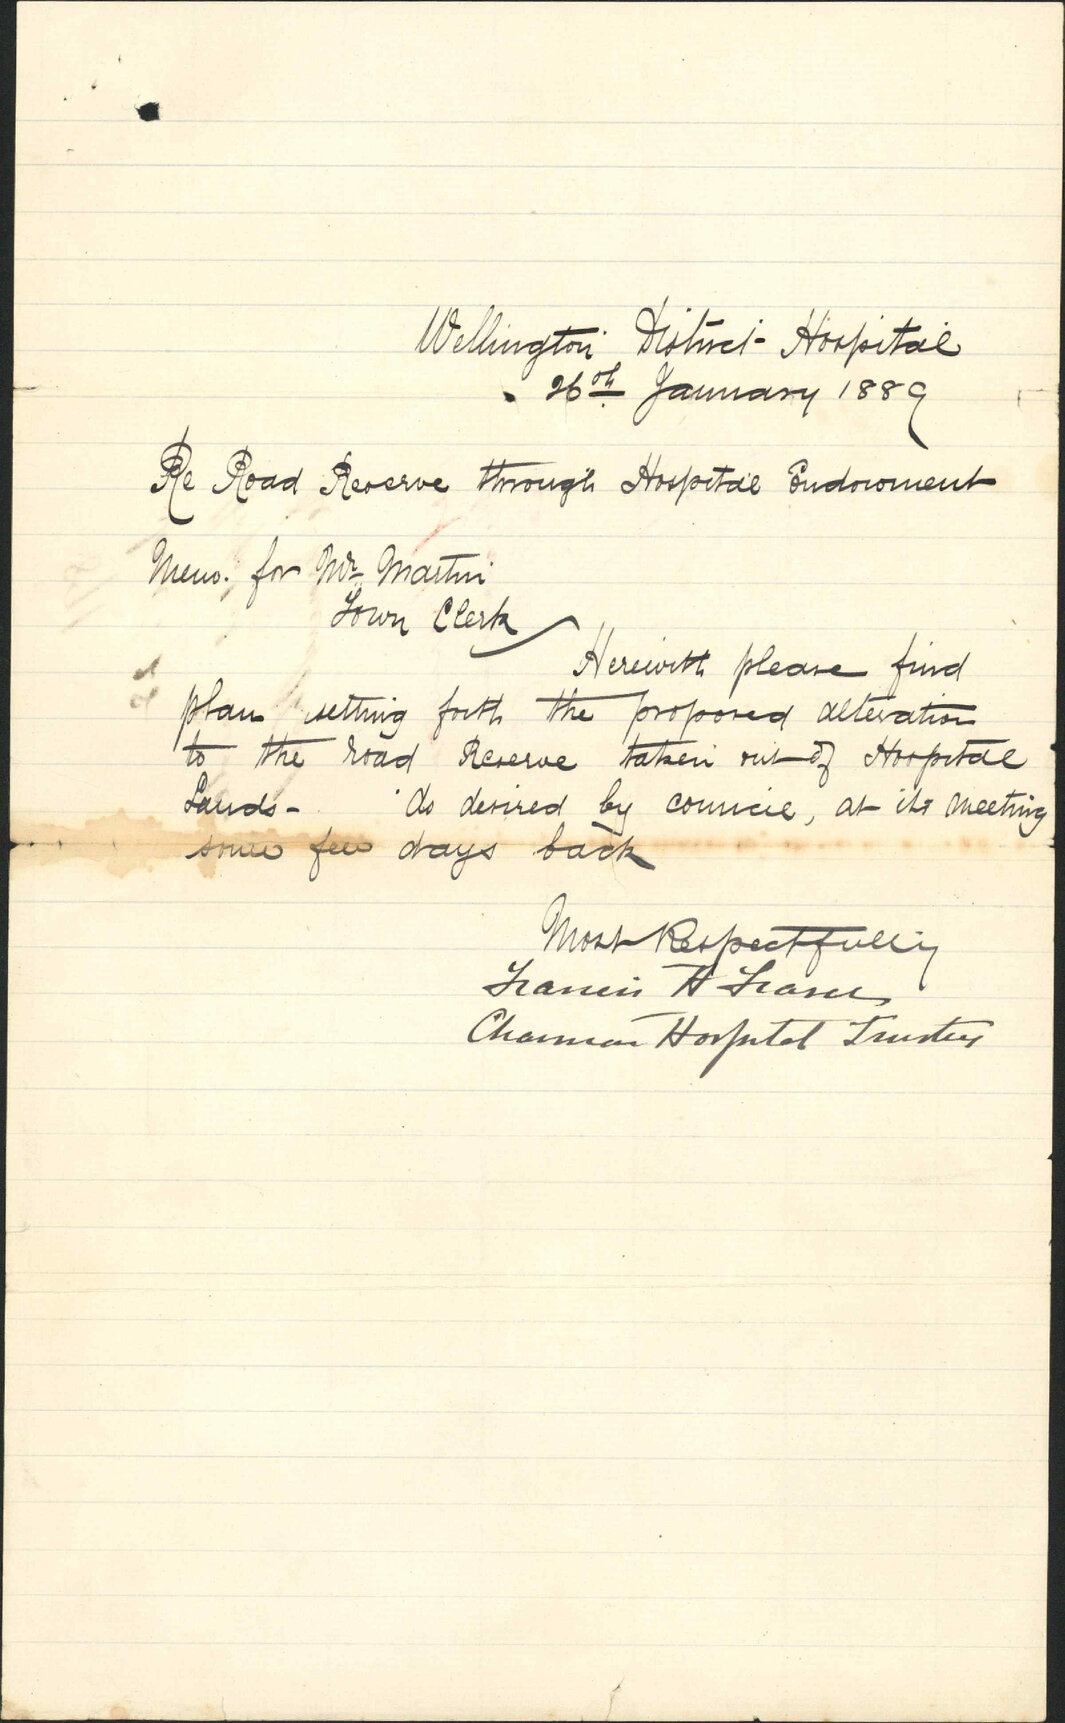 Wellington District Hospital
26th January 1889
Re Road Reserve through Hospital Endowment
Memo. for Mr Martin
Town Clerk
Herewith please find
plan setting forth the proposed alteration
to the road Reserve taken out of Hospital
Lands - As desired by council, at its meeting
some few days back
Most Respectfully
Francis H Fraser
Chairman Hospital Trustees